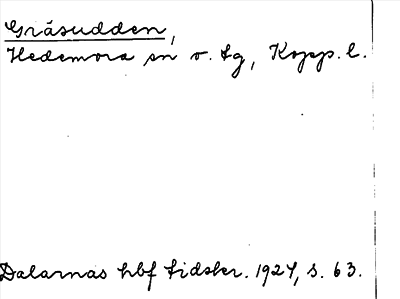 Gråsudden,
Hedemora sn o. tg, Kopp. l.
Dalarnas hbf tidskr. 1927, s. 63.